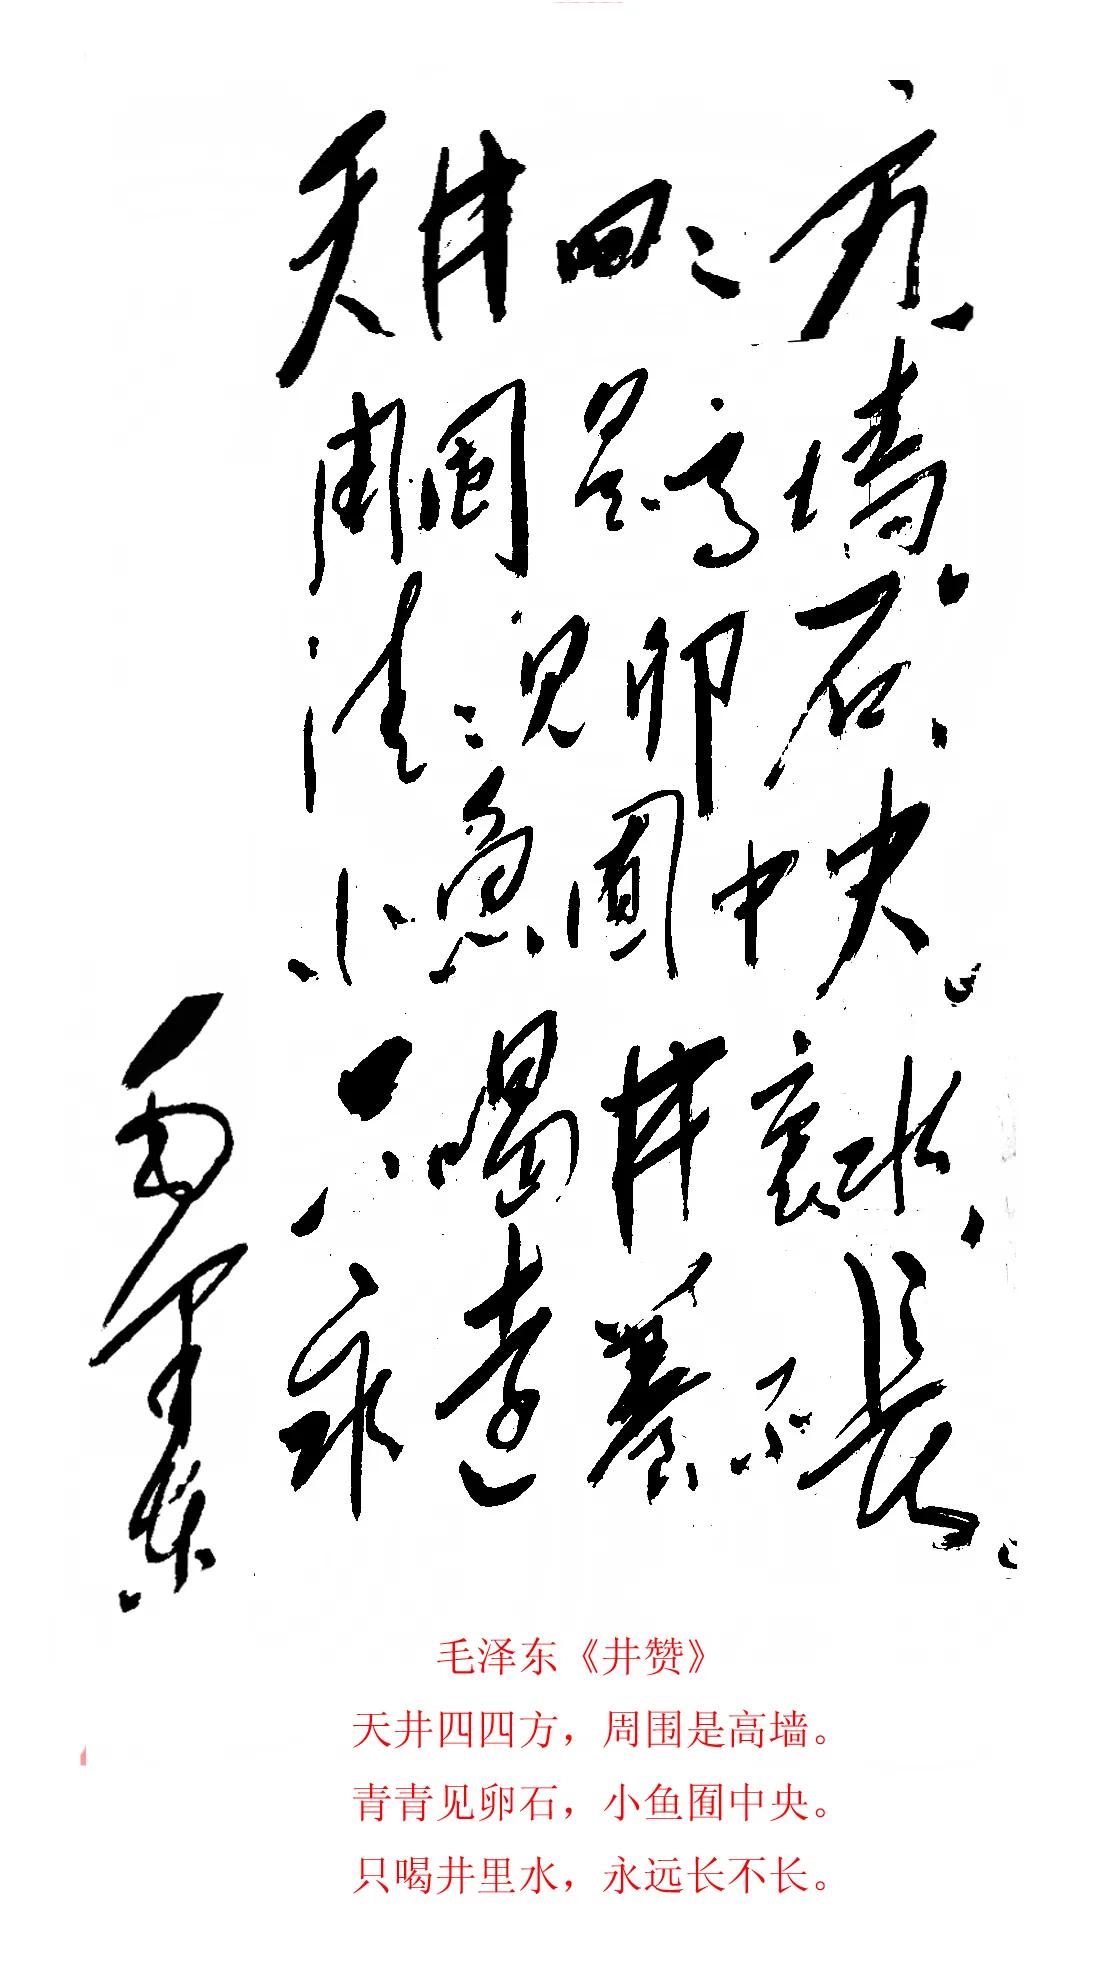 天井四々方、
周圍是高墙。
清々見卵石、
小魚囿中央。
只喝井裏水、
永遠養不長。
毛泽東
毛泽东《井赞》
天井四四方，周围是高墙。
青青见卵石，小鱼囿中央。
只喝井里水，永远长不长。